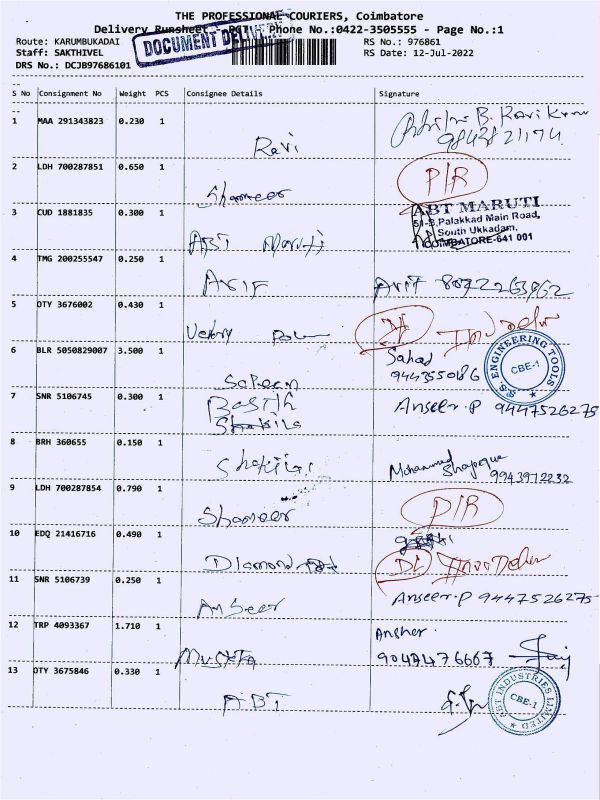 THE PROFESSIONAL COURIERS, Coimbatore
Delivery Runsheet Phone No.:0422-3505555 - Page No.:1
Route: KARUMBUKADAI
RS No.: 976861
Staff: SAKTHIVEL
RS Date: 12-Jul-2022
DRS No.: DCJB97686101
DOCUMENT DELIVERY
S No Consignment No Weight PCS Consignee Details Signature
1 MAA 291343823 0.230 1
Ravi
B. Ravi Kumar
2 LDH 700287851 0.650 1
Shameer
P/R
3 CUD 1881835 0.300 1
ABT Maruti
ABT MARUTI
51-B, Palakkad Main Road,
South Ukkadam,
COIMBATORE-641 001
4 TMG 200255547 0.250 1
Arif
Arif
5 OTY 3676002 0.430 1
6 BLR 5050829007 3.500 1
Sahad
9443550186
S.S. ENGINEERING TOOLS
CBE-1
7 SNR 5106745 0.300 1
Anseer.P 9447526275
8 BRH 360655 0.150 1
Mohammed
9943972232
9 LDH 700287854 0.790 1
Shameer
P/R
10 EDQ 21416716 0.490 1
Diamond
11 SNR 5106739 0.250 1
Anseer
Anseer.P 9447526275
12 TRP 4093367 1.710 1
Ansher.
9047476667
13 OTY 3675846 0.330 1
ABT
ABT INDUSTRIES LIMITED
CBE-1